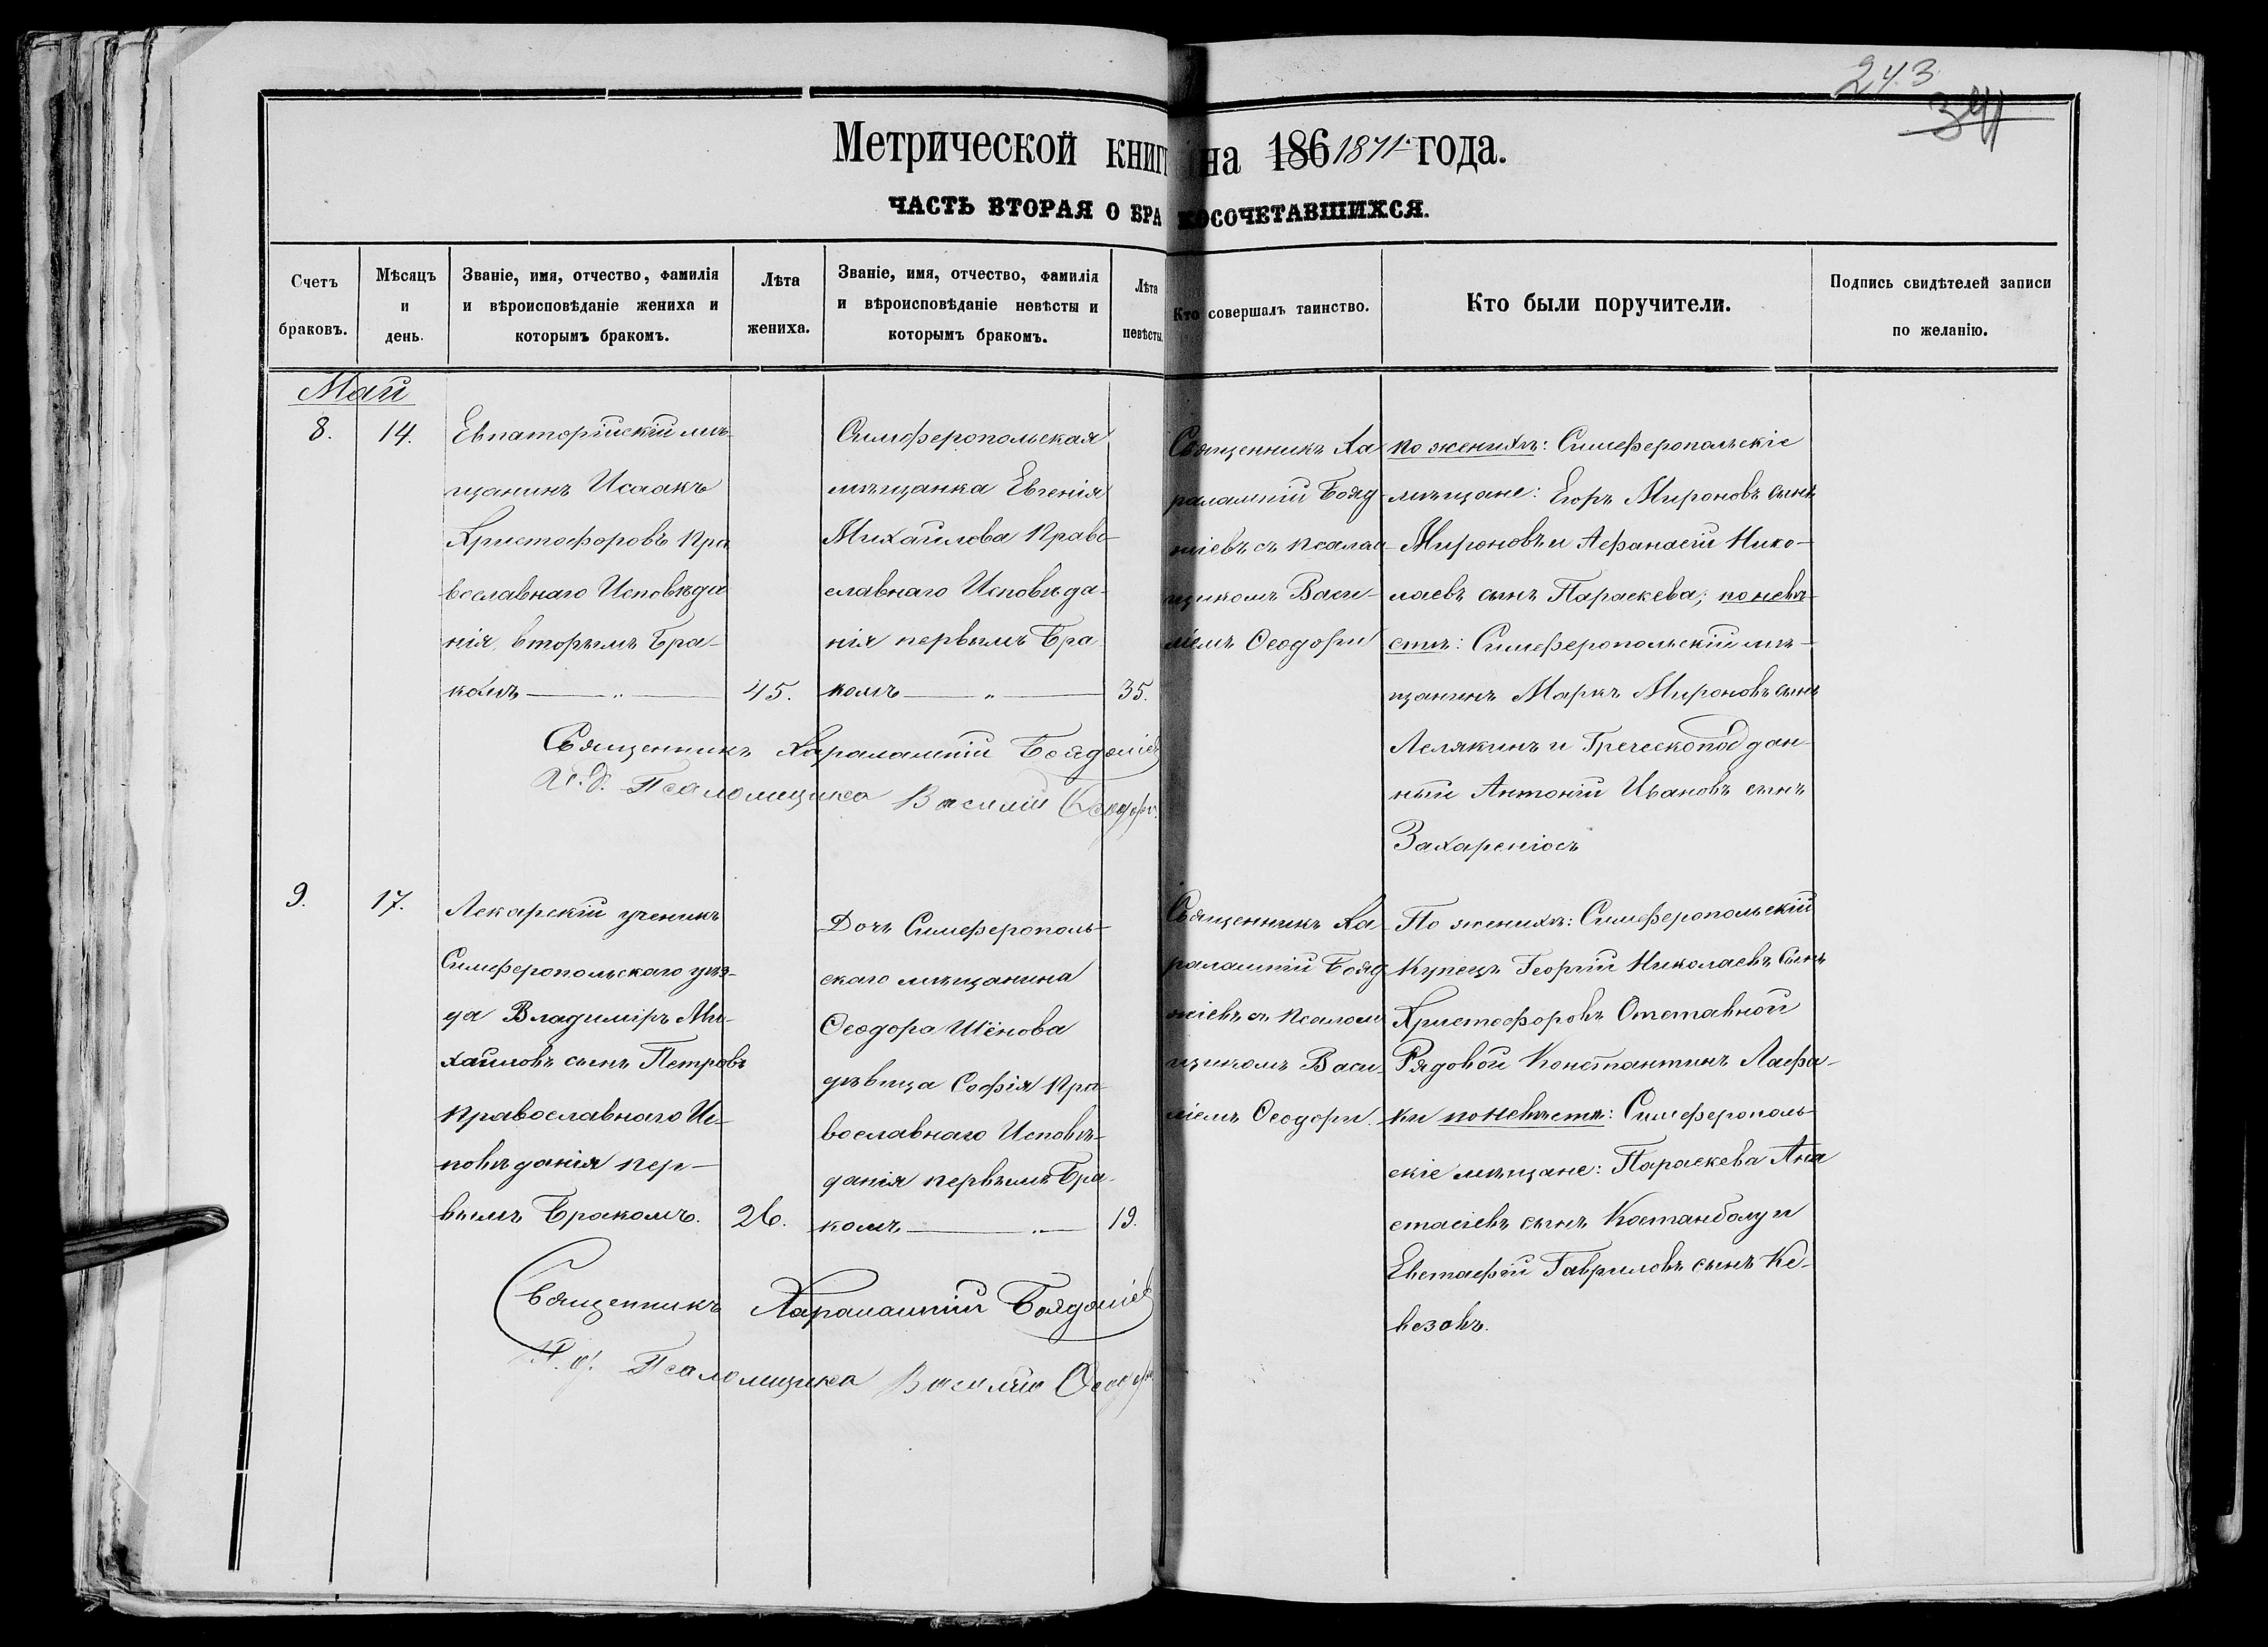 243
341
Метрической книги на 186 1871 года.
ЧАСТЬ ВТОРАЯ О БРАКОСОЧЕТАВШИХСЯ.
Счетъ браковъ.
Мѣсяцъ и день.
Званіе, имя, отчество, фамилія и вѣроисповѣданіе жениха и которымъ бракомъ.
Лѣта жениха.
Званіе, имя, отчество, фамилія и вѣроисповѣданіе невѣсты и которымъ бракомъ.
Лѣта невѣсты.
Кто совершалъ таинство.
Кто были поручители.
Подпись свидѣтелей записи по желанію.
Май
8.
14.
Евпаторійскій мѣ-
щанинъ Исаакъ
Христофоровъ Пра
вославнаго Исповѣда
нія, вторымъ Бра-
комъ
45.
Симферопольская
мѣщанка Евгенія
Михайлова Право-
славнаго Исповѣда-
нія первымъ Бра-
комъ
35.
Священникъ Ха
ралампій Бояд-
жіевъ съ Псалом-
щикомъ Васи-
ліемъ Ѳеодори
по женихѣ: Симферопольскіе
мѣщане: Егоръ Мироновъ сынъ
Мироновъ и Афанасій Нико-
лаевъ сынъ Параскева; по невѣ-
стѣ: Симферопольскій мѣ-
щанинъ Маркъ Мироновъ сынъ
Лелякинъ и Греческоподдан-
ный Антоній Ивановъ сынъ
Захареніосъ
Священникъ Харалампій Бояджіевъ
И.д. Псаломщика Василій Ѳеодори
9.
17.
Лекарскій ученикъ
Симферопольскаго уѣз-
да Владиміръ Ми-
хаиловъ сынъ Петровъ
Православнаго Ис-
повѣданія пер-
вымъ Бракомъ.
26.
Дочь Симферополь-
скаго мѣщанина
Ѳеодора Шёнова
дѣвица Софія Пра-
вославнаго Исповѣ-
данія первымъ Бра-
комъ
19.
Священникъ Ха-
ралампій Бояд
жіевъ съ Псалом
щикомъ Васи-
ліемъ Ѳеодори.
По женихѣ: Симферопольскій
Купецъ Георгій Николаевъ Сынъ
Христофоровъ Отставной
Рядовой Константинъ Лафа-
ки по невѣстѣ: Симферополь-
скіе мѣщане: Параскева Ана
стасіевъ сынъ Костанболу и
Евстафій Гавриловъ сынъ Ке-
везовъ.
Священникъ Харалампій Бояджіевъ
И.д. Псаломщика Василій Ѳеодори